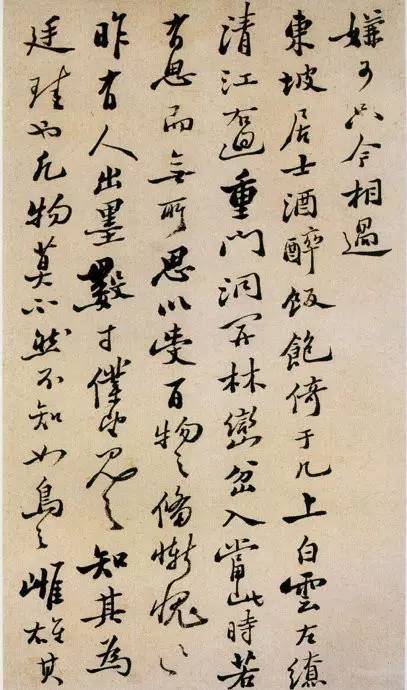 嫌可只今相過
東坡居士酒醉飯飽倚于几上白雲左繚
清江右迴重門洞開林巒坌入當此時若
有思而無所思以受百物之備慚愧〻〻
昨有人出墨數寸僕望見之知其為
廷珪也凡物莫不然不知如烏之雌雄其